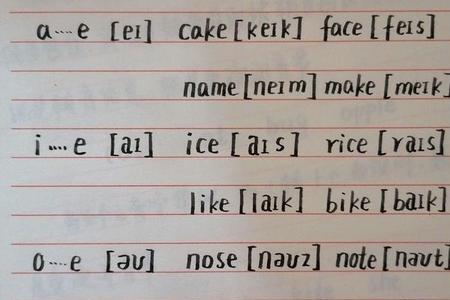 a....e [eɪ] cake [keɪk] face [feɪs]
name [neɪm] make [meɪk]
i....e [aɪ] ice [aɪs] rice [raɪs]
like [laɪk] bike [baɪk]
o....e [əʊ] nose [nəʊz] note [nəʊt]